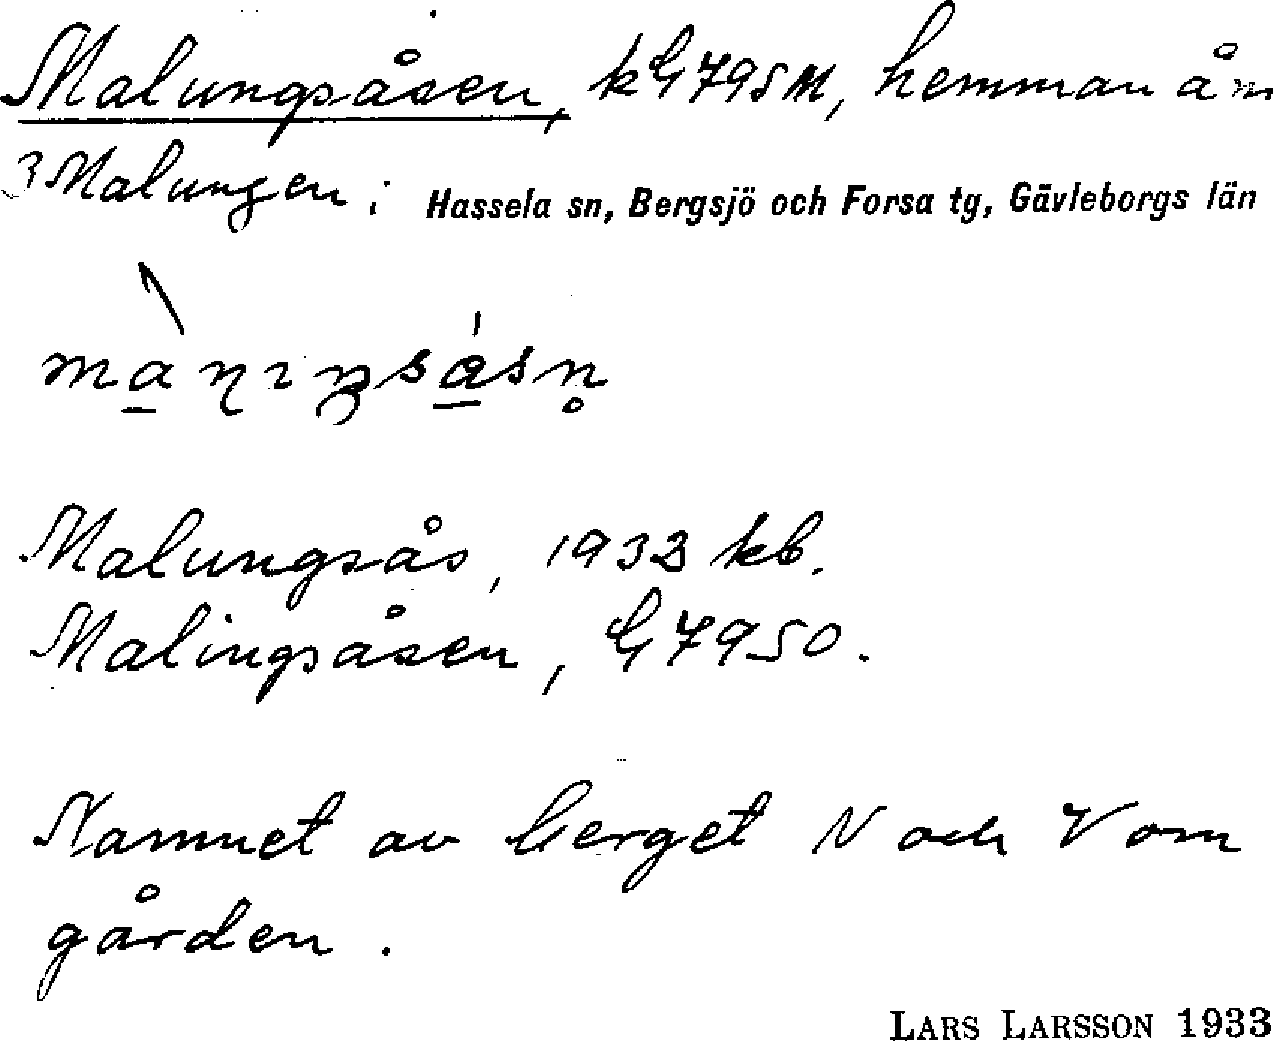 Malungsåsen, kG795M, hemman å m
3 Malungen; Hassela sn, Bergsjö och Forsa tg, Gävleborgs län
Malungsås, 1933 kb.
Malingsåsen, G7950.
Namnet av berget N och V om
gården.
LARS LARSSON 1933